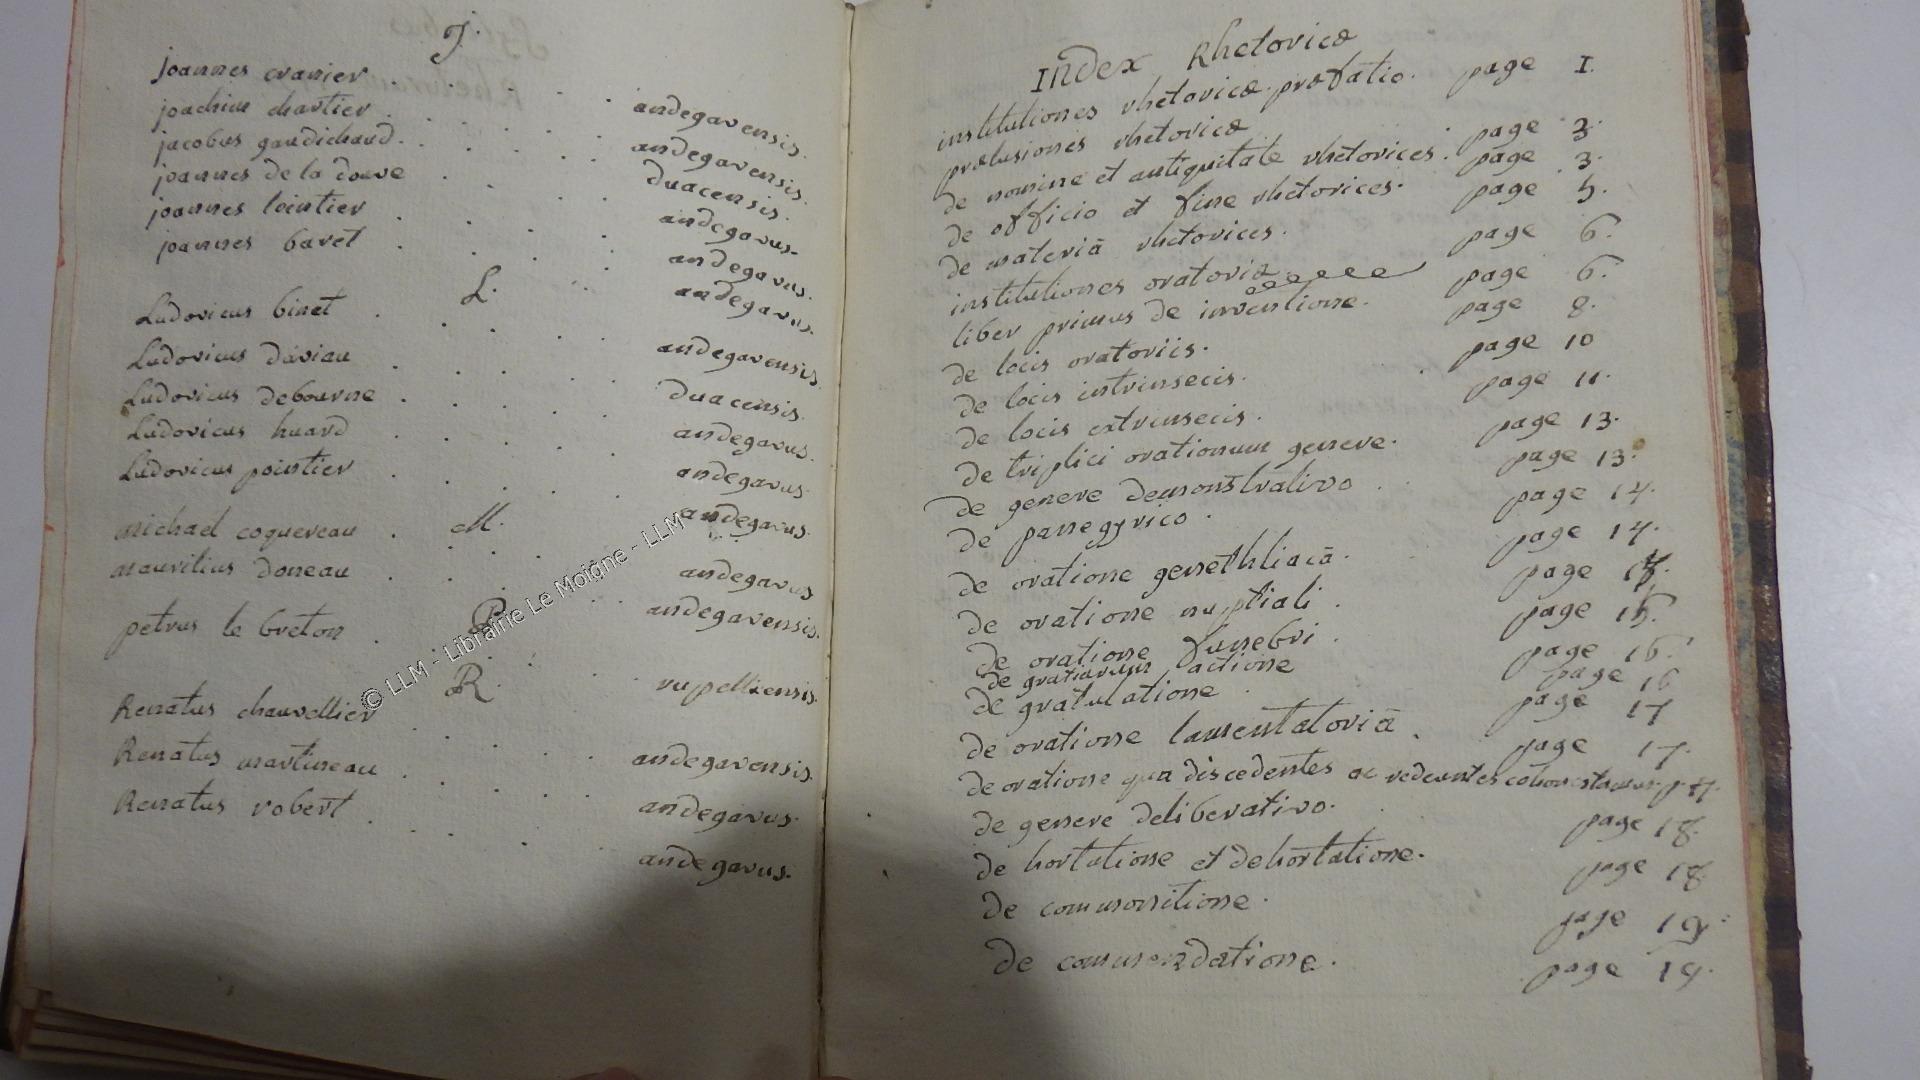 J.
joannes cranier . . . . . andegavensis.
joachim chartier . . . . . andegavensis.
jacobus gaudichaud . . . . . duacensis.
joannes de la douve . . . . andegavus.
joannes lointier . . . . andegavus.
joannes bavet . . . . andegavus.
L.
Ludovicus binet . . . . . andegavensis
Ludovicus daviau . . . . . duacensis.
Ludovicus debourne . . . . . andegavus.
Ludovicus huard . . . . . andegavus.
Ludovicus pointier . . . . . andegavus.
M.
michael coquereau . . . . andegavus
mauritius doneau . . . . andegavensis.
P.
petrus le breton . . . . rupellensis.
R.
Renatus chauvellier . . . . . andegavensis.
Renatus martineau . . . . . andegavus.
Renatus robert . . . . andegavus.
Index Rhetoricæ
institutiones rhetoricæ. præfatio. page 1.
prælusiones rhetoricæ page 3.
de nomine et antiquitate rhetorices. page 3.
de officio et fine rhetorices. page 5.
de materiâ rhetorices. page 6.
institutiones oratoriæ page 6.
liber primus de inventione. page 8.
de locis oratoriis. page 10
de locis intrinsecis. page 11.
de locis extrinsecis. page 13.
de triplici orationum genere. page 13.
de genere demonstrativo page 14.
de panegyrico. page 14.
de oratione genethliacâ. page
de oratione nuptiali. page 15.
de oratione funebri. page 16.
de gratiarum actione page 16
de gratulatione. page 17
de oratione lamentatoriâ. page 17.
de oratione qua discedentes ac redeuntes cohonestamus. p. 17.
de genere deliberativo. page 18.
de hortatione et dehortatione. page 18
de commonitione. page 19.
de commendatione. page 19.
© LLM - Librairie Le Moigne - LLM